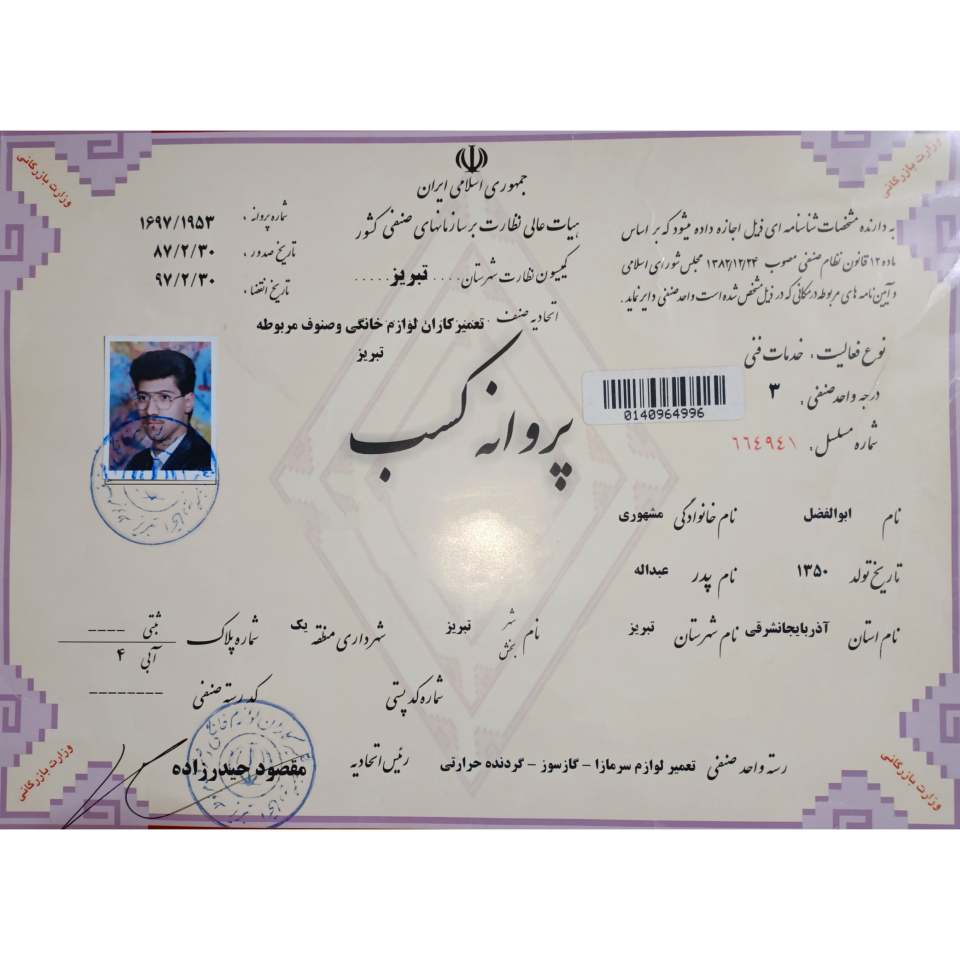 وزارت بازرگانی
وزارت بازرگانی
جمهوری اسلامی ایران
هیات عالی نظارت بر سازمانهای صنفی کشور
کمیسیون نظارت شهرستان ..... تبریز .....
اتحادیه صنف . تعمیرکاران لوازم خانگی وصنوف مربوطه
تبریز
به دارنده مشخصات شناسنامه ای ذیل اجازه داده میشود که بر اساس
ماده ۱۲ قانون نظام صنفی مصوب ۱۳۸۲/۱۲/۲۴ مجلس شورای اسلامی
و آیین نامه های مربوطه در مکانی که در ذیل مشخص شده است واحد صنفی دایر نماید.
شماره پروانه : ۱۶۹۷/۱۹۵۳
تاریخ صدور : ۸۷/۲/۳۰
تاریخ انقضا : ۹۷/۲/۳۰
نوع فعالیت : خدمات فنی
درجه واحد صنفی : ۳
شماره مسلسل : ۶۶۴۹۴۱
0140964996
پروانه کسب
نام ابوالفضل نام خانوادگی مشهوری
تاریخ تولد ۱۳۵۰ نام پدر عبداله
نام استان آذربایجانشرقی نام شهرستان تبریز نام شهر بخش تبریز شهرداری منطقه یک شماره پلاک ثبتی ---- آبی ۴
شماره کد پستی کد رسته صنفی --------
رسته واحد صنفی تعمیر لوازم سرمازا - گازسوز - گردنده حرارتی رئیس اتحادیه مقصود حیدرزاده
وزارت بازرگانی
وزارت بازرگانی